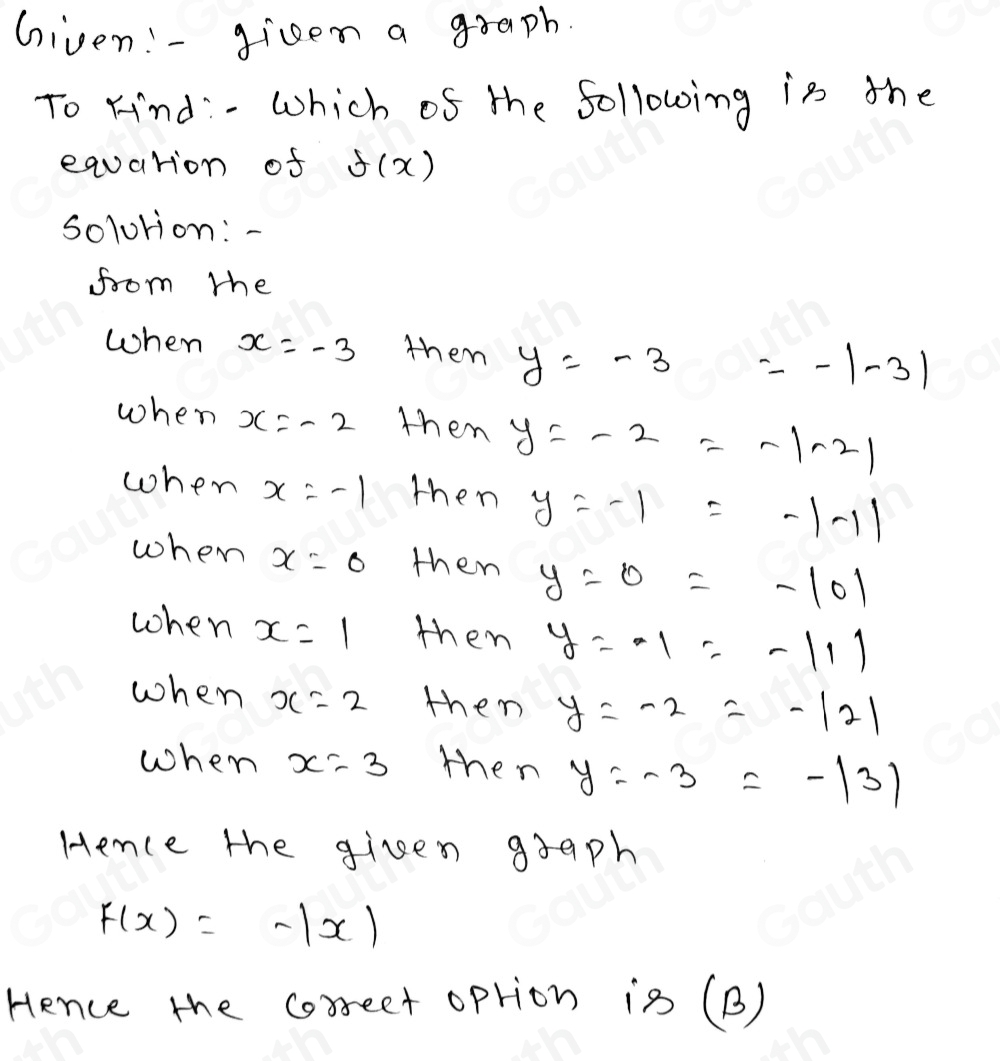 Given:- given a graph.
To Find:- which of the following is the
equation of f(x)
Solution:-
from the
when x = -3 then y = -3 = -|-3|
when x = -2 then y = -2 = -|-2|
when x = -1 then y = -1 = -|-1|
when x = 0 then y = 0 = -|0|
when x = 1 then y = -1 = -|1|
when x = 2 then y = -2 = -|2|
when x = 3 then y = -3 = -|3|
Hence the given graph
F(x) = -|x|
Hence the correct option is (B)